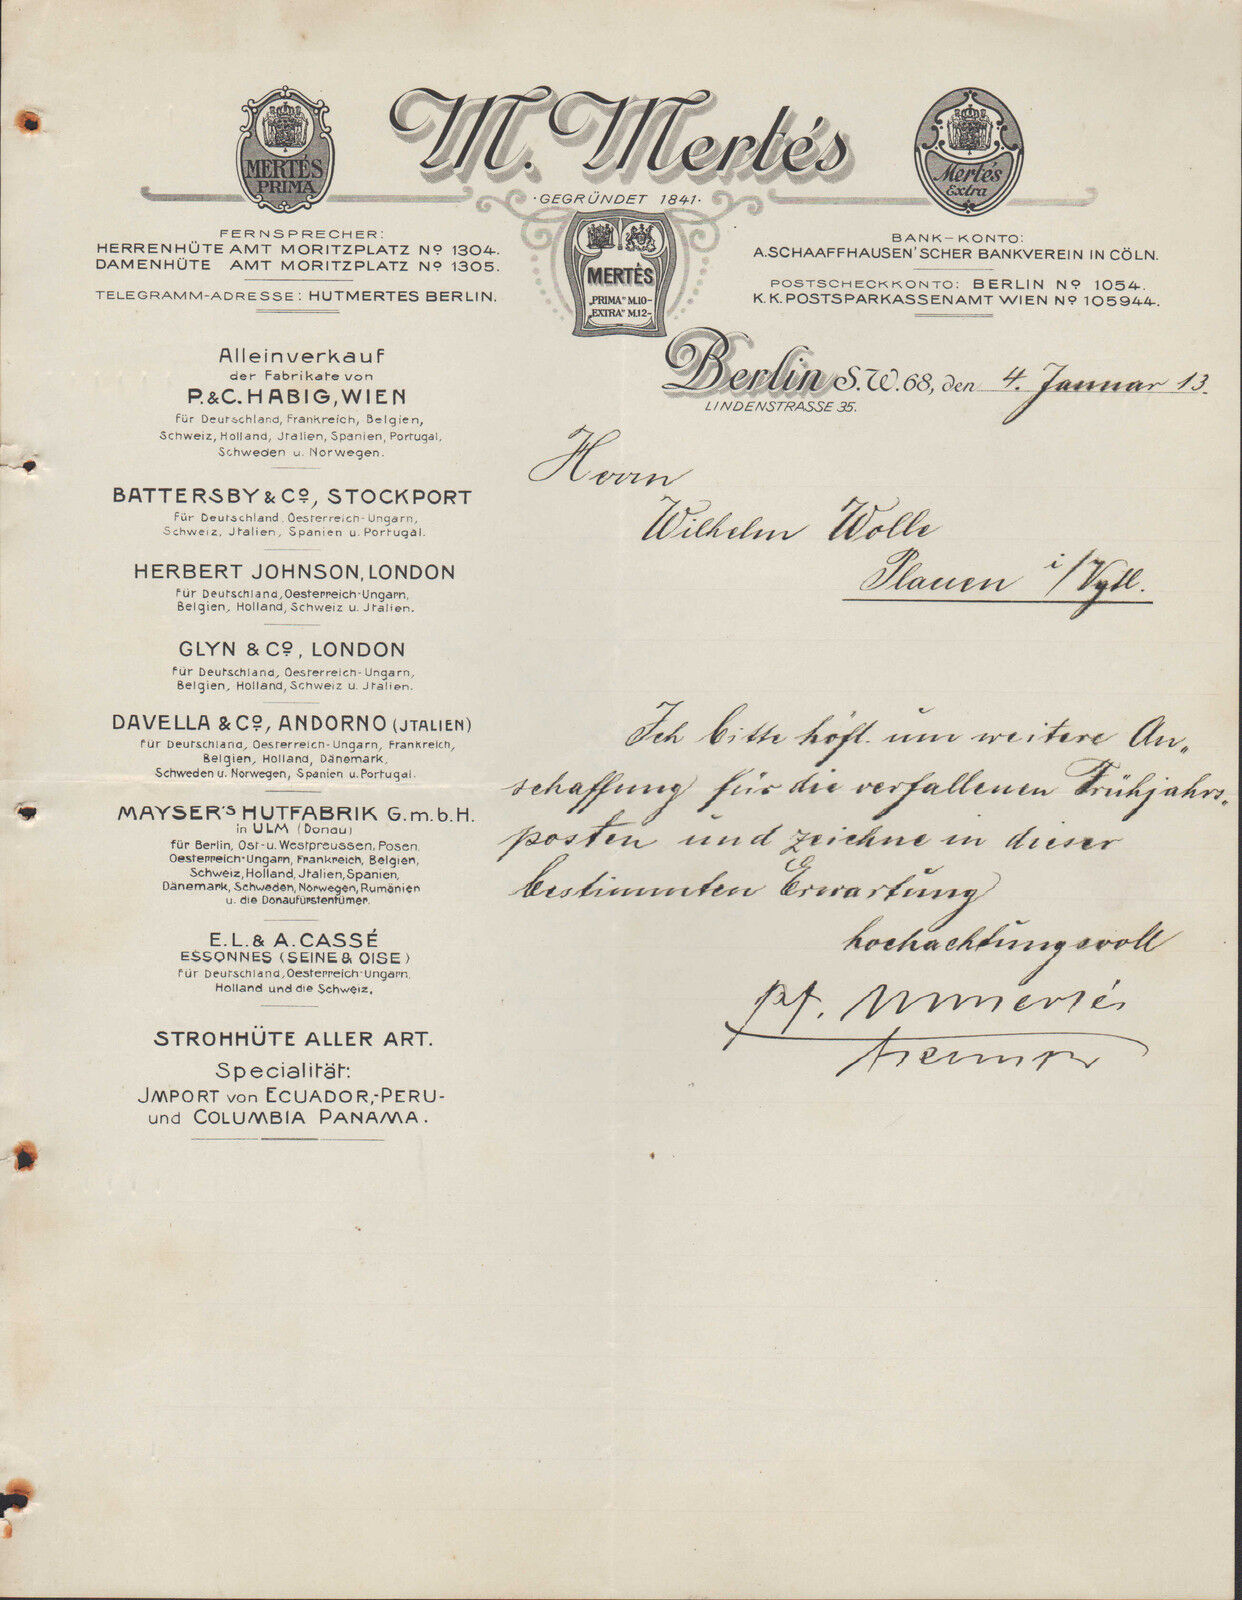 M. Mertés
MERTÉS
PRIMA
Mertés
Extra
·GEGRÜNDET 1841·
MERTÉS
„PRIMA" M.10-
„EXTRA" M.12-
FERNSPRECHER:
HERRENHÜTE AMT MORITZPLATZ No 1304.
DAMENHÜTE AMT MORITZPLATZ No 1305.
TELEGRAMM-ADRESSE: HUTMERTES BERLIN.
BANK-KONTO:
A. SCHAAFFHAUSEN'SCHER BANKVEREIN IN CÖLN.
POSTSCHECKKONTO: BERLIN No 1054.
K.K. POSTSPARKASSENAMT WIEN No 105944.
Berlin S.W. 68, den 4. Januar 13.
LINDENSTRASSE 35.
Alleinverkauf
der Fabrikate von
P. & C. HABIG, WIEN
für Deutschland, Frankreich, Belgien,
Schweiz, Holland, Jtalien, Spanien, Portugal,
Schweden u. Norwegen.
BATTERSBY & Co, STOCKPORT
für Deutschland, Oesterreich-Ungarn,
Schweiz, Jtalien, Spanien u. Portugal.
HERBERT JOHNSON, LONDON
für Deutschland, Oesterreich-Ungarn,
Belgien, Holland, Schweiz u. Jtalien.
GLYN & Co, LONDON
für Deutschland, Oesterreich-Ungarn,
Belgien, Holland, Schweiz u. Jtalien.
DAVELLA & Co, ANDORNO (JTALIEN)
für Deutschland, Oesterreich-Ungarn, Frankreich,
Belgien, Holland, Dänemark,
Schweden u. Norwegen, Spanien u. Portugal.
MAYSER'S HUTFABRIK G.m.b.H.
in ULM (Donau)
für Berlin, Ost- u. Westpreussen, Posen,
Oesterreich-Ungarn, Frankreich, Belgien,
Schweiz, Holland, Jtalien, Spanien,
Dänemark, Schweden, Norwegen, Rumänien
u. die Donaufürstentümer.
E. L. & A. CASSÉ
ESSONNES (SEINE & OISE)
für Deutschland, Oesterreich-Ungarn,
Holland und die Schweiz.
STROHHÜTE ALLER ART.
Specialität:
JMPORT von ECUADOR,- PERU-
und COLUMBIA PANAMA.
Herrn
Wilhelm Wolle
Plauen i/Vgtl.
Ich bitte höfl. um weitere An„
schaffung für die verfallenen Frühjahrs„
posten und zeichne in dieser
bestimmten Erwartung
hochachtungsvoll
pp. M Mertés